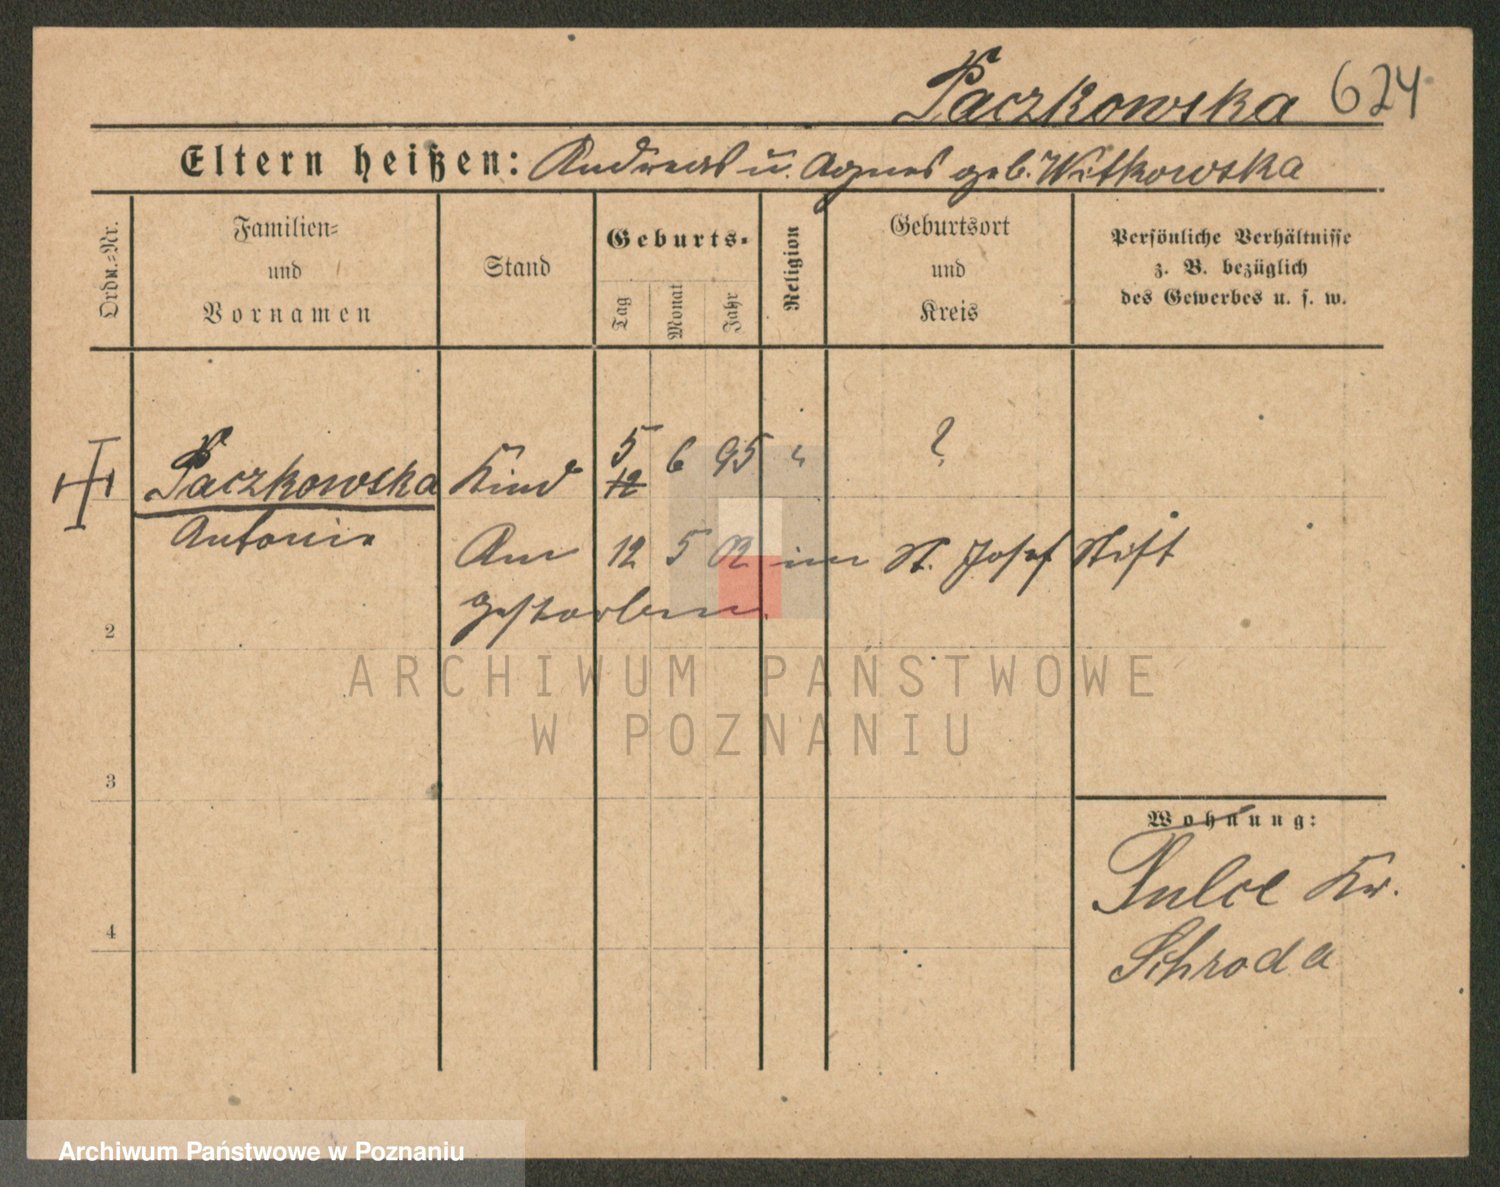 Paczkowska 624
Eltern heißen: Andreas u. Agnes geb. Witkowska
Ordn.-Nr.
Familien-
und
Vornamen
Stand
Geburts-
Tag
Monat
Jahr
Religion
Geburtsort
und
Kreis
Persönliche Verhältnisse
z. B. bezüglich
des Gewerbes u. s. w.
Paczkowska Kind 5 6 95 " ?
12
Antonie
Am 12 5 02 im St. Josef Stift
gestorben
2
3
4
Wohnung:
Kr.
Schroda
ARCHIWUM PAŃSTWOWE
W POZNANIU
Archiwum Państwowe w Poznaniu